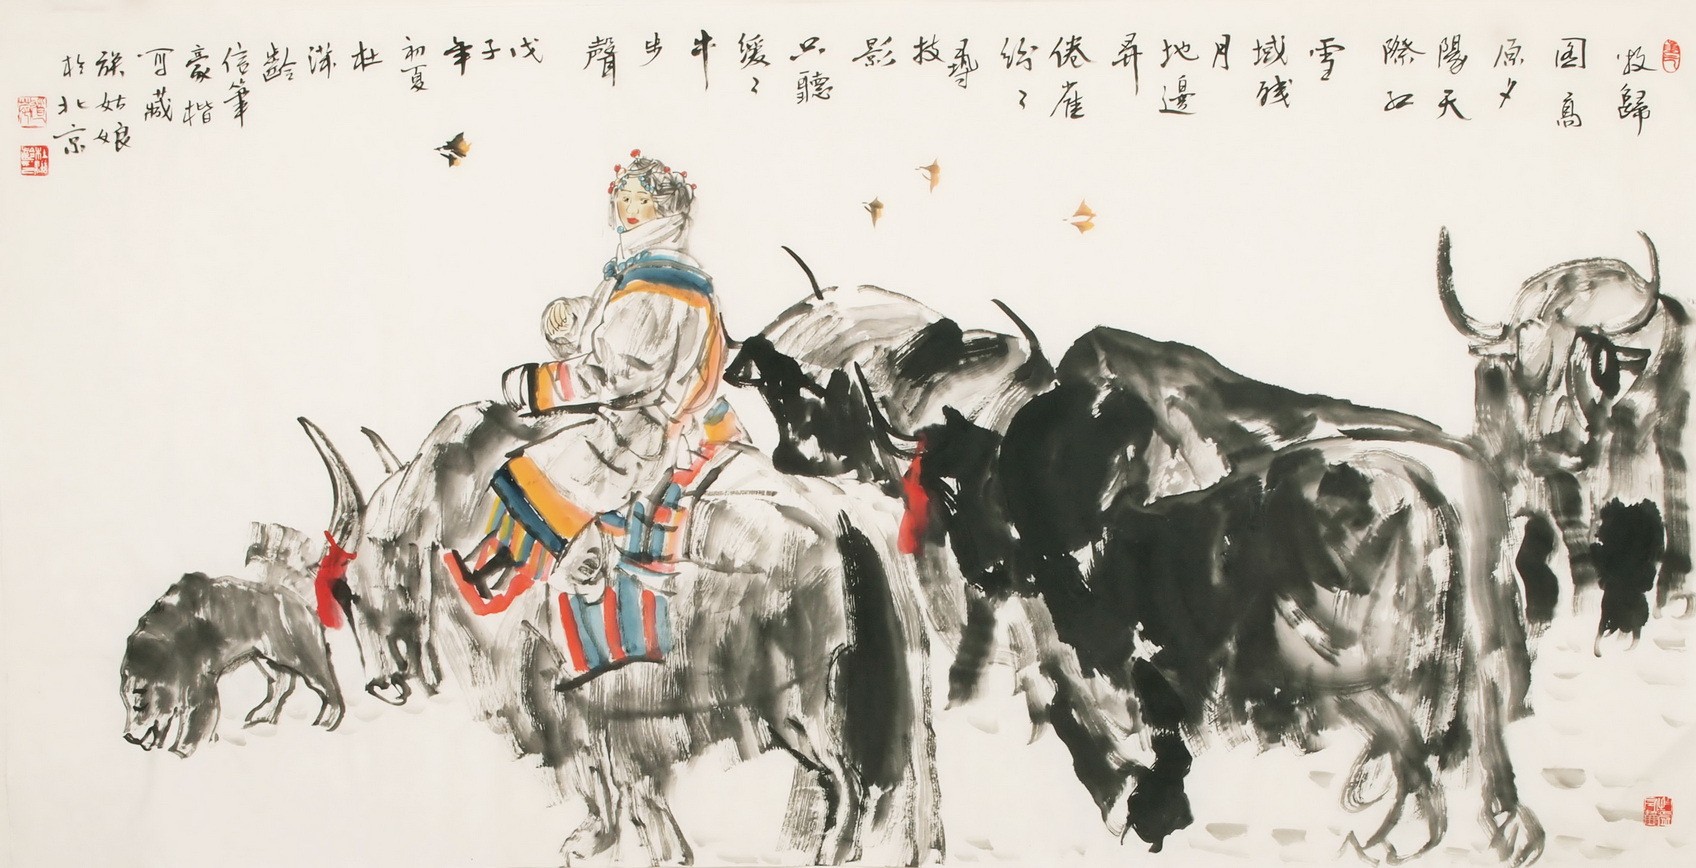 牧歸
图高
原夕
陽天
際紅
雪
域殘
月
地邊
昇
倦雀
紛〻
尋
技
影
只聽
緩〻
牛
步
聲
戊
子
年
初夏
杜
滋
齡
信筆
豪
写藏
族姑娘
於北京